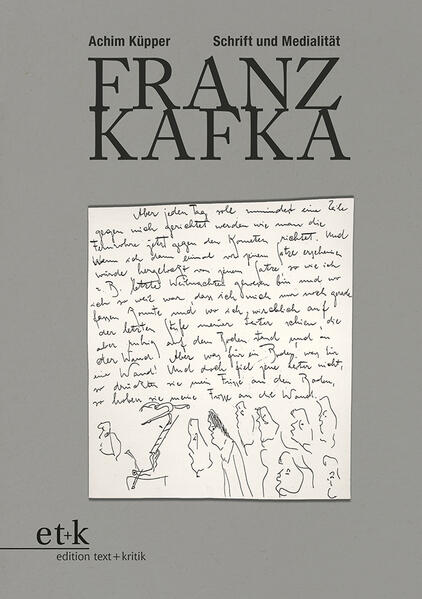 Achim Küpper Schrift und Medialität
FRANZ
KAFKA
Aber jeden Tag soll zumindest eine Zeile
gegen mich gerichtet werden wie man die
Fernrohre jetzt gegen den Kometen richtet. Und
wenn ich dann einmal vor jenem Satze erscheinen
würde hergelockt von jenem Satze so wie ich
z. B. letzte Weihnachten gewesen bin und wo
ich so weit war, dass ich mich nur noch gerade
fassen konnte und wo ich wirklich auf
der letzten Stufe meiner Leiter schien, die
aber ruhig auf dem Boden stand und an
der Wand. Aber was für ein Boden, was für
eine Wand! Und doch fiel jene Leiter nicht,
so drückten sie meine Füsse an den Boden,
so hoben sie meine Füsse an die Wand.
et+k
edition text+kritik